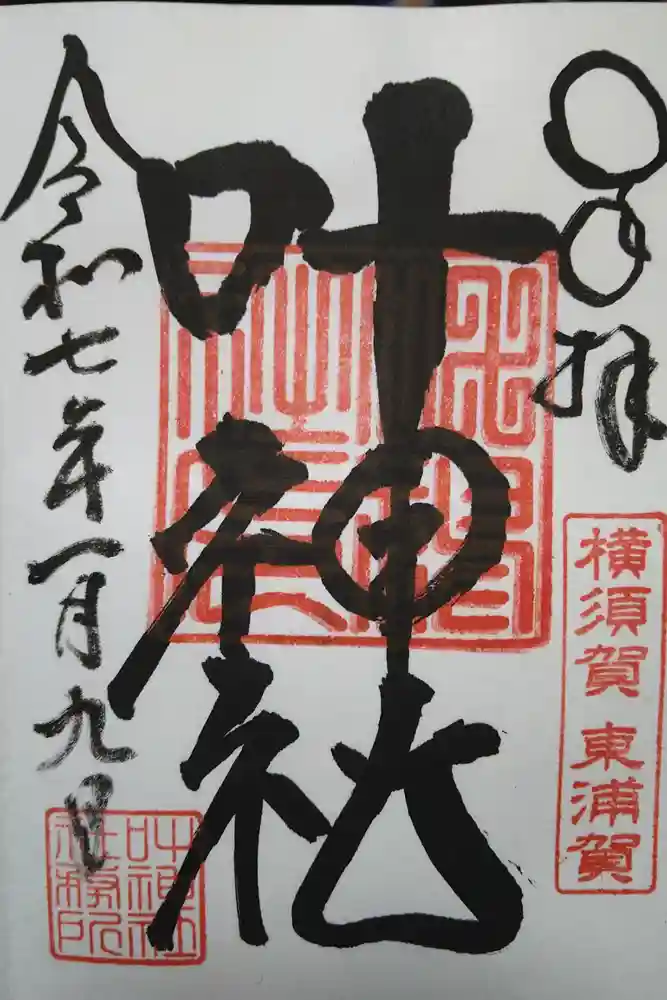 奉拝
横須賀 東浦賀
叶神社
令和七年一月九日
叶神社
社務所